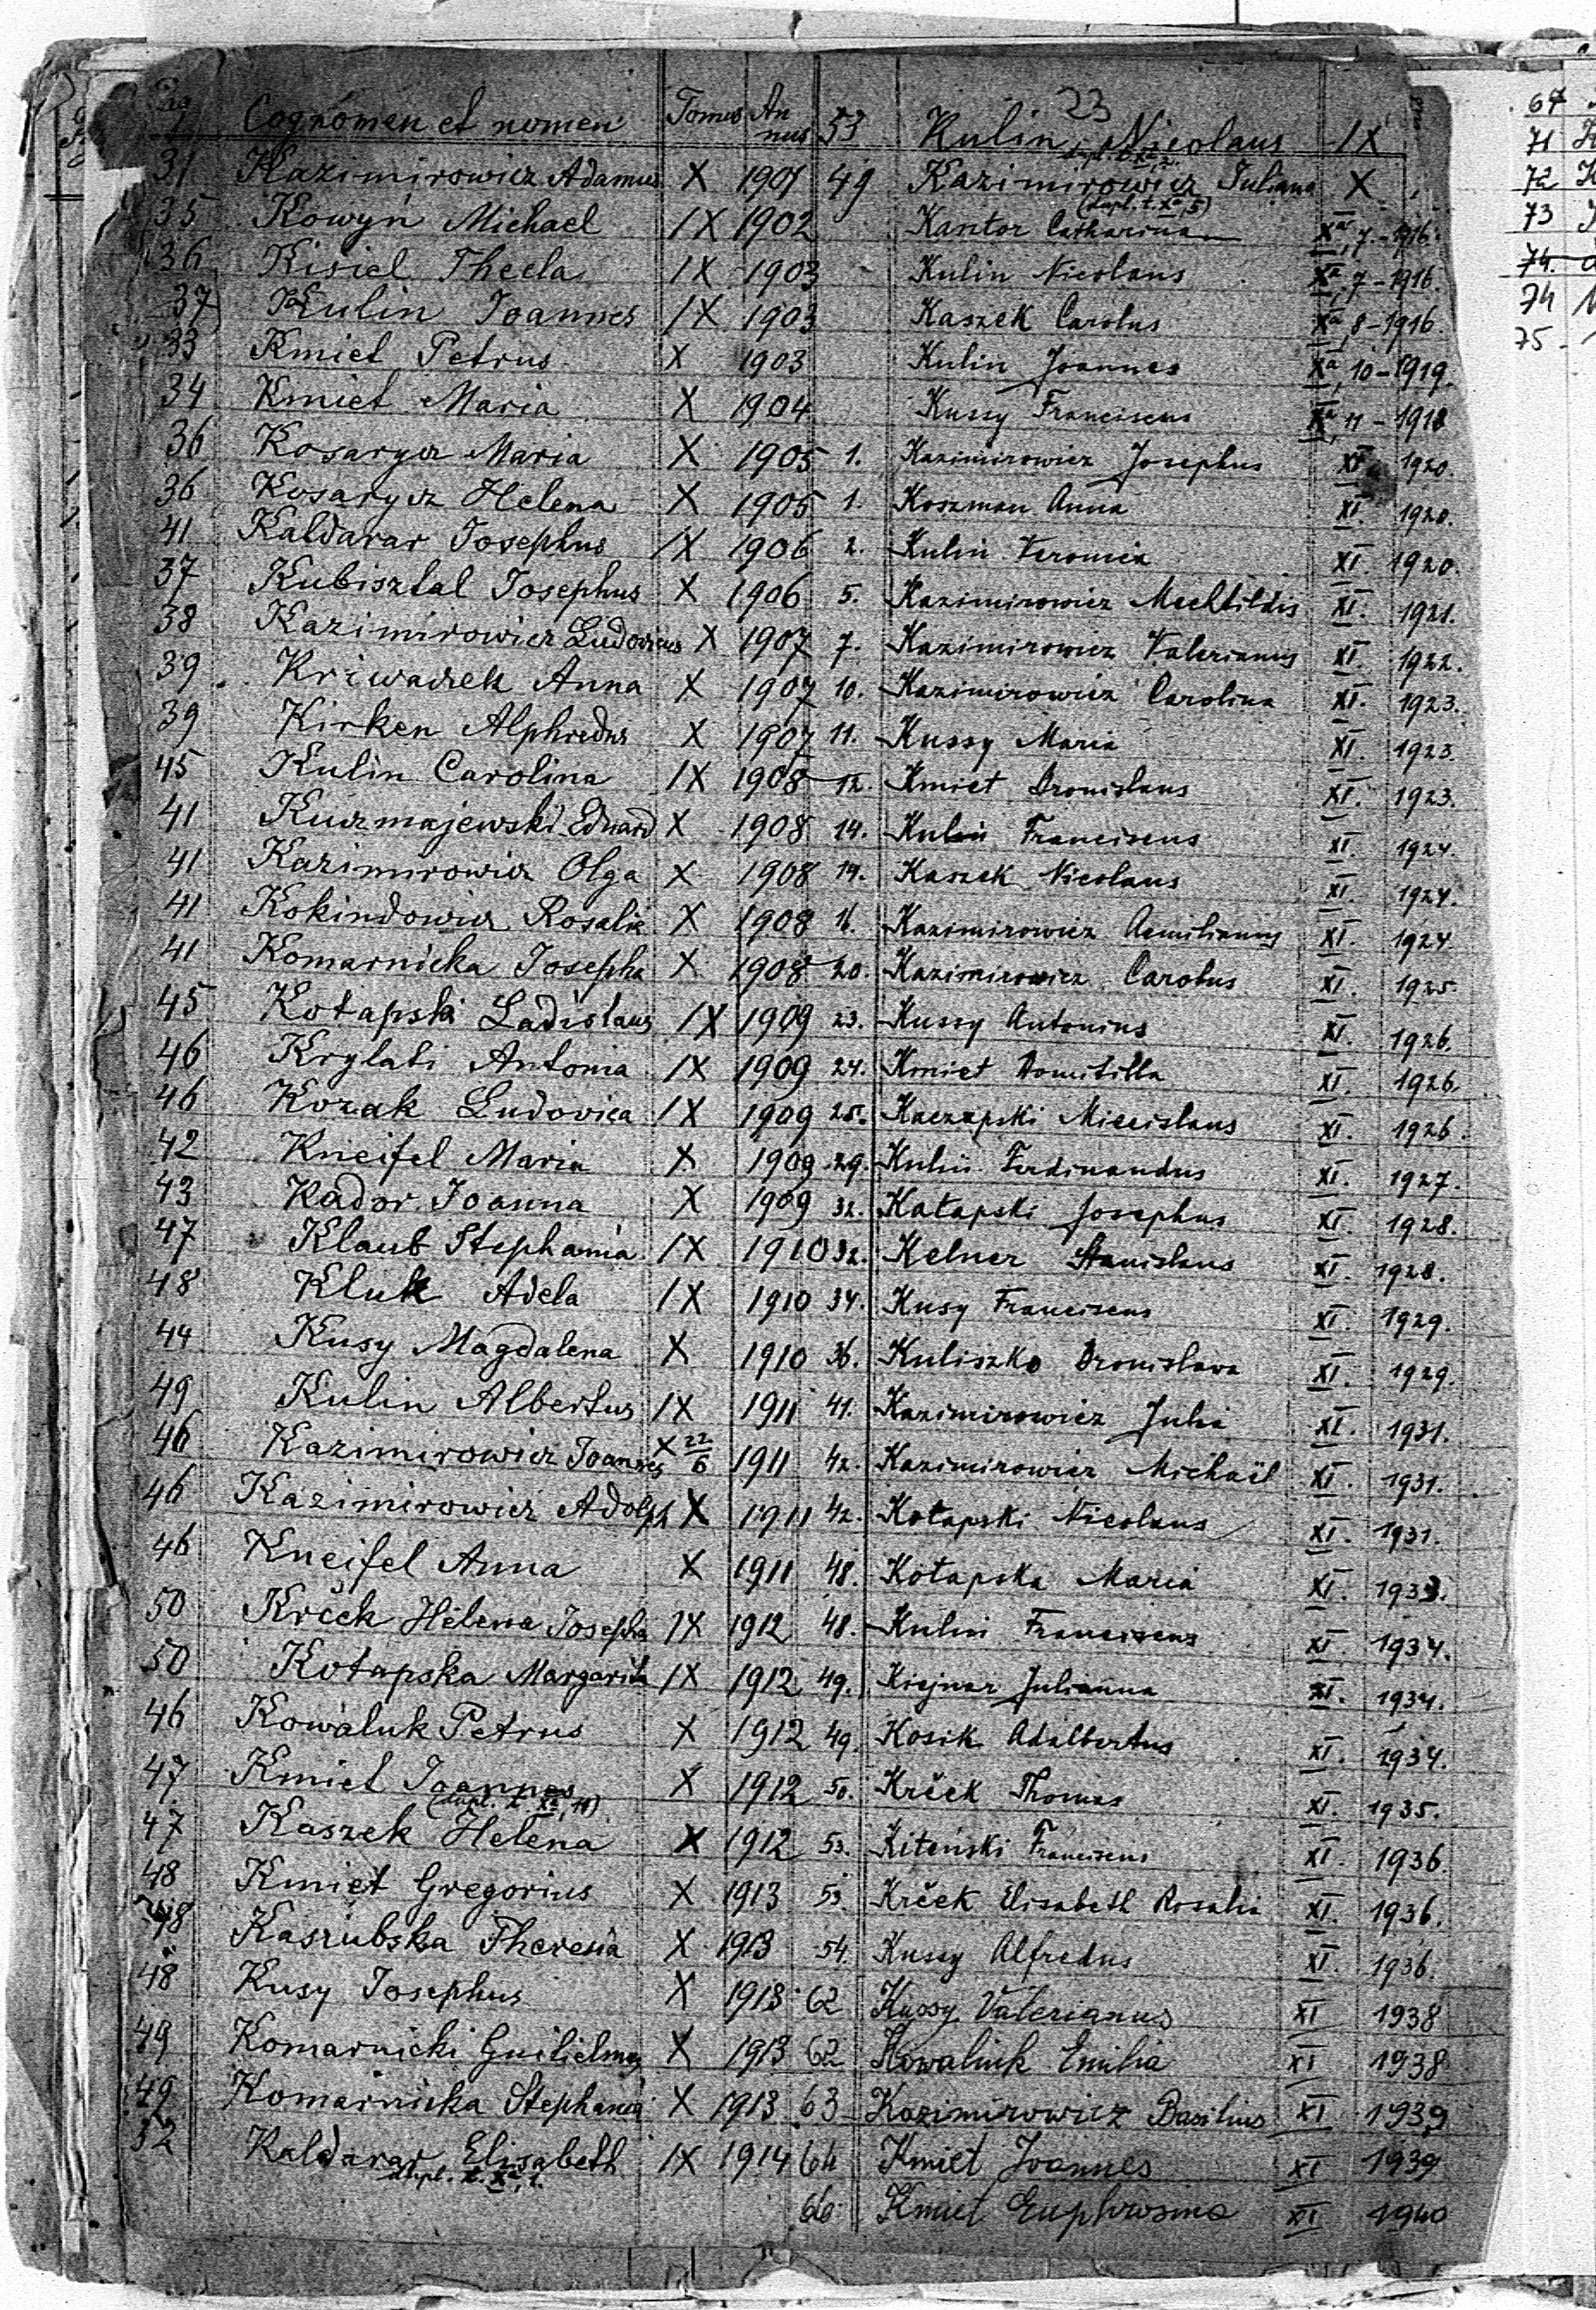 23
Pag. Cognomen et nomen Tomus Annus
31 Kazimirowicz Adamus X 1901
35 Kowyń Michael IX 1902
36 Kisiel Thecla IX 1903
37 Kulin Joannes IX 1903
33 Kmiet Petrus X 1903
34 Kmiet Maria X 1904
36 Kosarycz Maria X 1905
36 Kosarycz Helena X 1905
41 Kaldarar Josephus IX 1906
37 Kubisztal Josephus X 1906
38 Kazimirowicz Ludovicus X 1907
39 Kriwaczek Anna X 1907
39 Kirken Alphredus X 1907
45 Kulin Carolina IX 1908
41 Kuczmajewski Eduard X 1908
41 Kazimirowicz Olga X 1908
41 Kokindowicz Rosalia X 1908
41 Komarnicka Josepha X 1908
45 Kotapski Ladislaus IX 1909
46 Krylati Antonia IX 1909
46 Kozak Ludovica IX 1909
42 Kneifel Maria X 1909
43 Kador Joanna X 1909
47 Klaub Stephania IX 1910
48 Kluk Adela IX 1910
44 Kusy Magdalena X 1910
49 Kulin Albertus IX 1911
46 Kazimirowicz Joannes X 22/6 1911
46 Kazimirowicz Adolph X 1911
46 Kneifel Anna X 1911
50 Krček Helena Josepha IX 1912
50 Kotapska Margarita IX 1912
46 Kowaluk Petrus X 1912
47 Kmiet Joannes X 1912
(dupl. t. Xa, 10)
47 Kaszek Helena X 1912
48 Kmiet Gregorius X 1913
48 Kaszubska Theresia X 1913
48 Kusy Josephus X 1913
49 Komarnicki Guilielmus X 1913
49 Komarnicka Stephania X 1913
52 Kaldarar Elisabeth IX 1914
dupl. t. Xa, 1.
53 Kulin Nicolaus IX
dupl. t. Xa, 2.
49 Kazimirowicz Juliana X
(dupl. t. Xa, 5)
Kantor Catharina Xa, 7-1916.
Kulin Nicolaus Xa, 7-1916.
Kaszek Carolus Xa, 8-1916.
Kulin Joannes Xa, 10-1919.
Kussy Franciscus Xa, 11-1918
1. Kazimirowicz Josephus XI 1920.
1. Koszman Anna XI. 1920.
2. Kulin Veronica XI. 1920.
5. Kazimirowicz Mechtildis XI. 1921.
7. Kazimirowicz Valerianus XI. 1922.
10. Kazimirowicz Carolina XI. 1923.
11. Kussy Maria XI 1923.
12. Kmiet Bronislaus XI. 1923.
14. Kulin Franciscus XI. 1924.
14. Kaszek Nicolaus XI. 1924.
16. Kazimirowicz Aemilianus XI. 1924
20. Kazimirowicz Carolus XI. 1925
23. Kussy Antonius XI. 1926.
24. Kmiet Domitilla XI. 1926.
25. Kaczapski Miecislaus XI. 1926.
29. Kulin Ferdinandus XI. 1927.
32. Kotapski Josephus XI. 1928.
32. Kelner Stanislaus XI. 1928.
34. Kusy Franciscus XI. 1929.
36. Kuliszko Bronislava XI. 1929.
41. Kazimirowicz Julia XI. 1931.
42. Kazimirowicz Michaël XI. 1931.
42. Kotapski Nicolaus XI. 1931.
48. Kotapska Maria XI. 1933.
48. Kulin Franciscus XI. 1934.
49. Kiejnar Julianna XI. 1934.
49. Kosik Adalbertus XI. 1934.
50. Krček Thomas XI. 1935.
53. Kiteński Franciscus XI. 1936.
53 Krček Elisabeth Rosalia XI. 1936.
54. Kussy Alfredus XI. 1936.
62 Kussy Valerianus XI 1938
62 Kowaluk Emilia XI 1938
63 Kazimirowicz Basilius XI 1939
64 Kmiet Joannes XI 1939
66 Kmiet Euphrosina XI 1940
67
71
72
73
74.
74
75